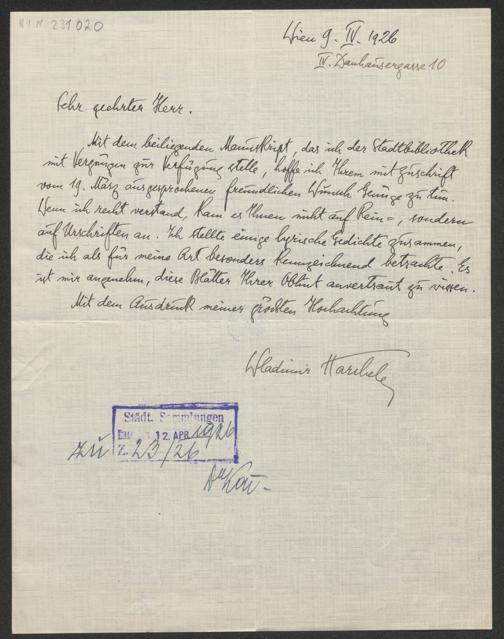 H.I.N. 231020
Wien 9. IV. 1926
IV. Danhausergasse 10
Sehr geehrter Herr.
Mit dem beiliegenden Manuskript, das ich der Stadtbibliothek
mit Vergnügen zur Verfügung stelle, hoffe ich Ihrem mit Zuschrift
vom 19. März ausgesprochenen freundlichen Wunsch Genüge zu tun.
Wenn ich recht verstand, kam es Ihnen nicht auf Rein=, sondern
auf Urschriften an. Ich stellte einige lyrische Gedichte zusammen,
die ich als für meine Art besonders kennzeichnend betrachte. Es
ist mir angenehm, diese Blätter Ihrer Obhut anvertraut zu wissen.
Mit dem Ausdruck meiner größten Hochachtung
Wladimir
Städt. Sammlungen
12. APR. 1926
zu Z. 23/26